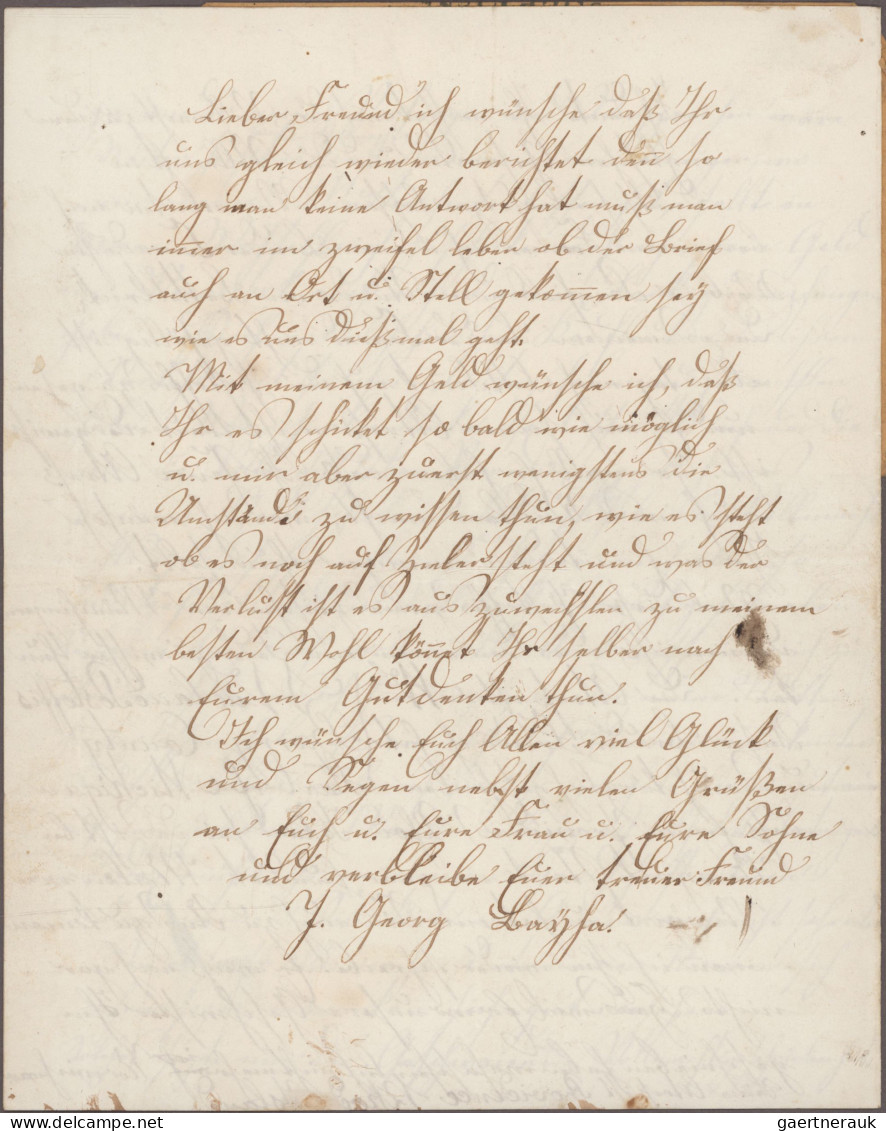 Lieber Freund ich wünsche daß Ihr
uns gleich wieder berichtet den̅ so
lang man keine Antwort hat muß man
im̅er im zweifel leben ob der Brief
auch an Ort u. Stell gekom̅en sey
wie es uns dießmal geht.
Mit meinem Geld wünsche ich, daß
Ihr es schicket so bald wie möglich
u. mir aber zuerst wenigstens die
Umstände zu wissen thun, wie es steht
ob es noch auf Zieler steht und was der
Verlust ist es aus zuwechslen zu meinem
besten Wohl kön̅et Ihr selber nach
Eurem Gutdenken thun.
Ich wünsche Euch Allen viel Glück
und Segen nebst vielen Grüßen
an Euch u. Eure Frau u. Eure Sohne
und verbleibe Euer treuer Freund
J. Georg Bayha.
gaertnerauk